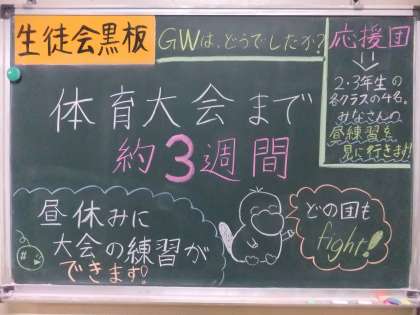 生徒会黒板
GWは、どうでしたか?
応援団
2・3年生の
各クラスの4名。
みなさんの
昼練習を
見に行きます!
体育大会まで
約3週間
昼休みに
大会の練習が
できます!
どの団も
fight!